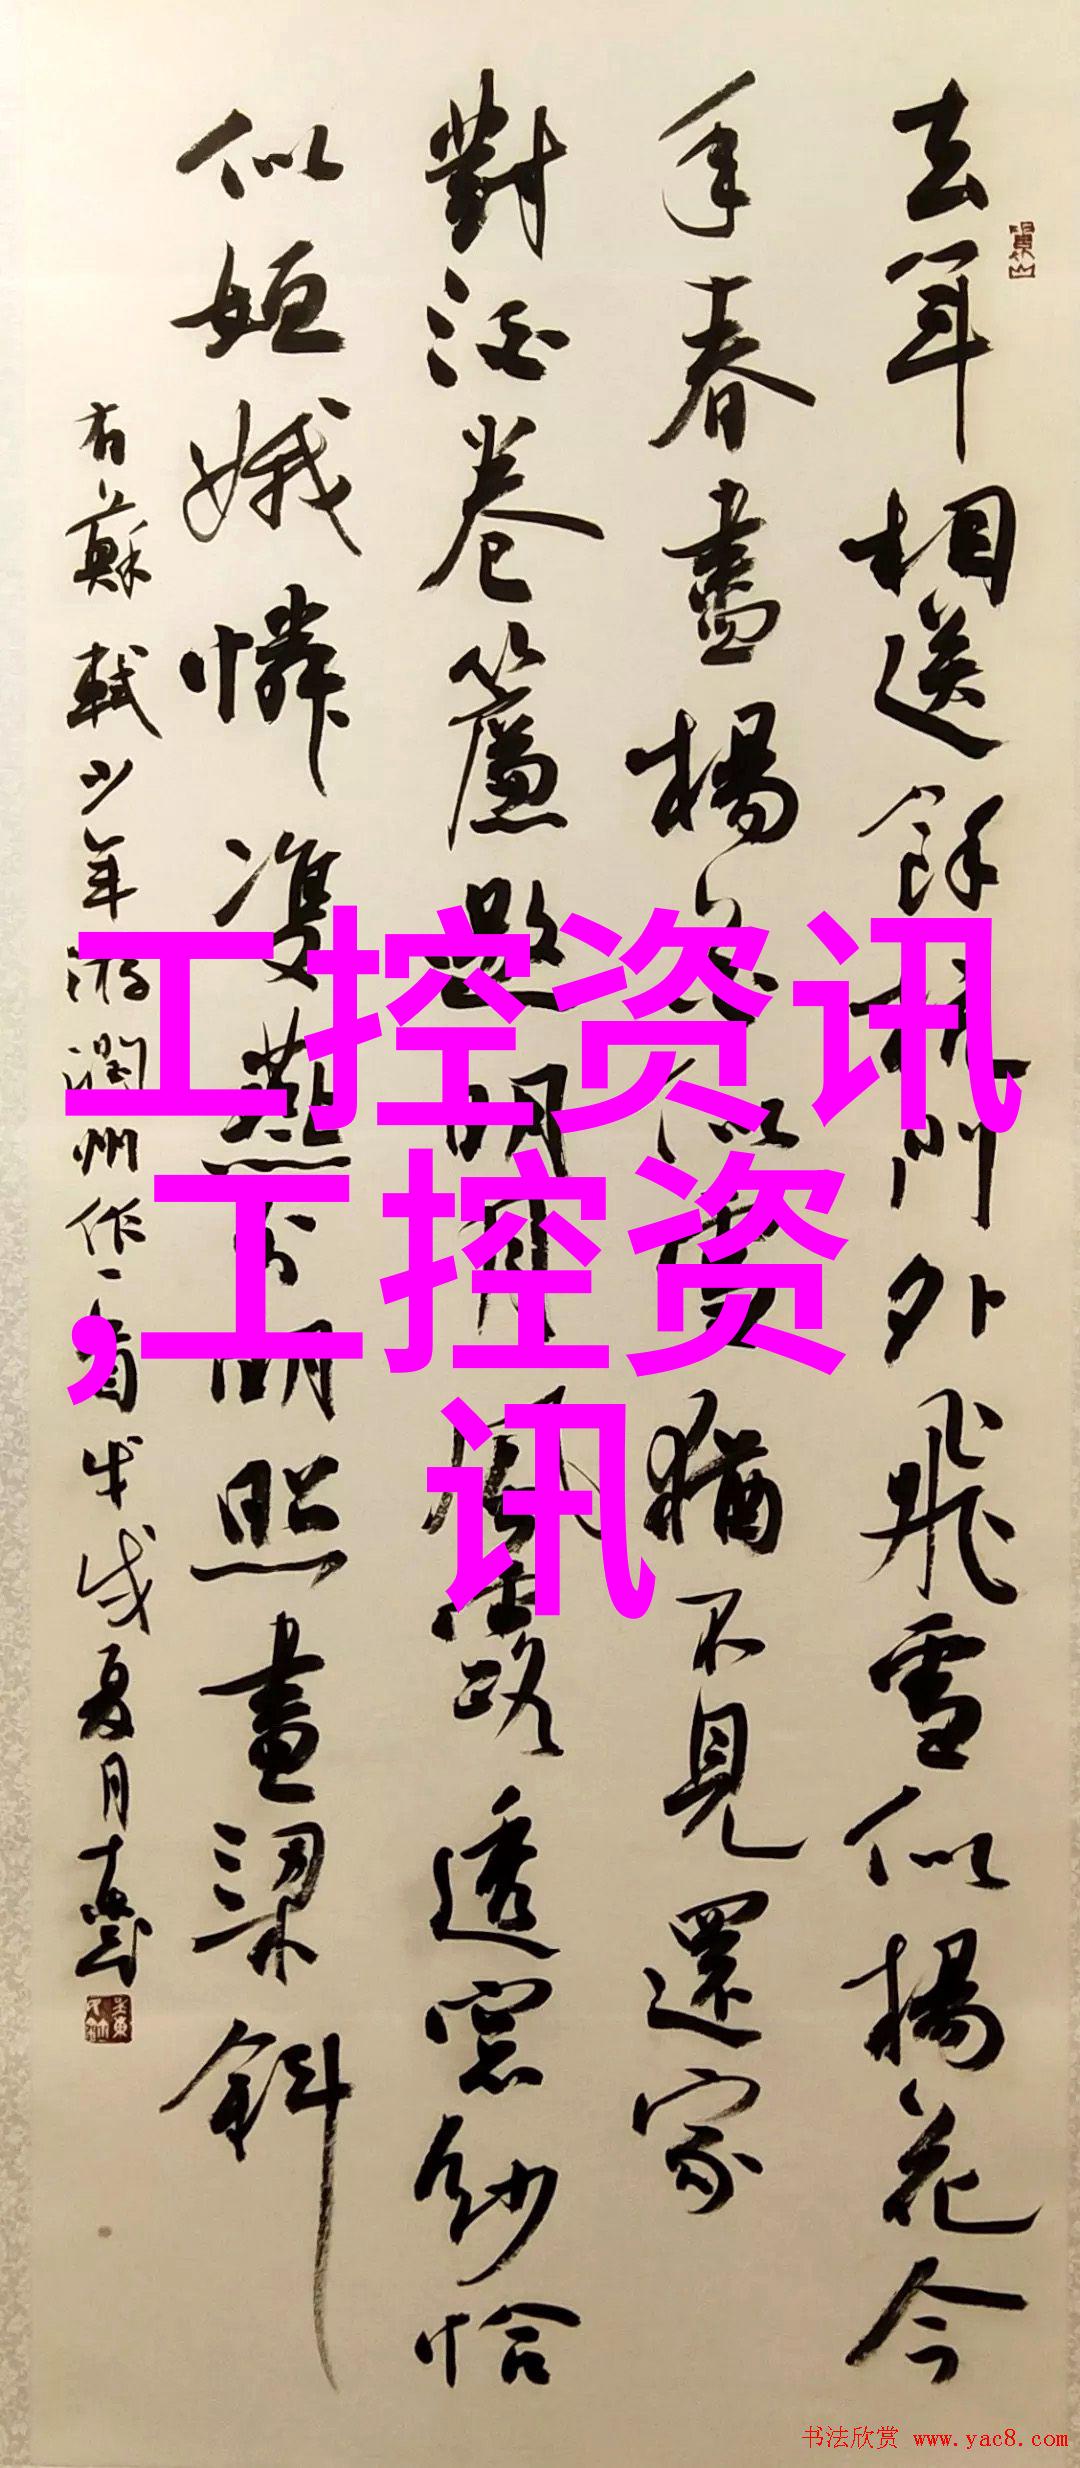 去年相送餘杭門外飛雪似楊花今
年春盡楊花似雪猶不見還家
對酒卷簾邀明月風露透窓紗恰
似姮娥憐雙燕分明照畫梁斜
右蘇軾少年游潤州作一首戊戌夏月
工控资讯
,工控资
讯
书法欣赏 www.yac8.com